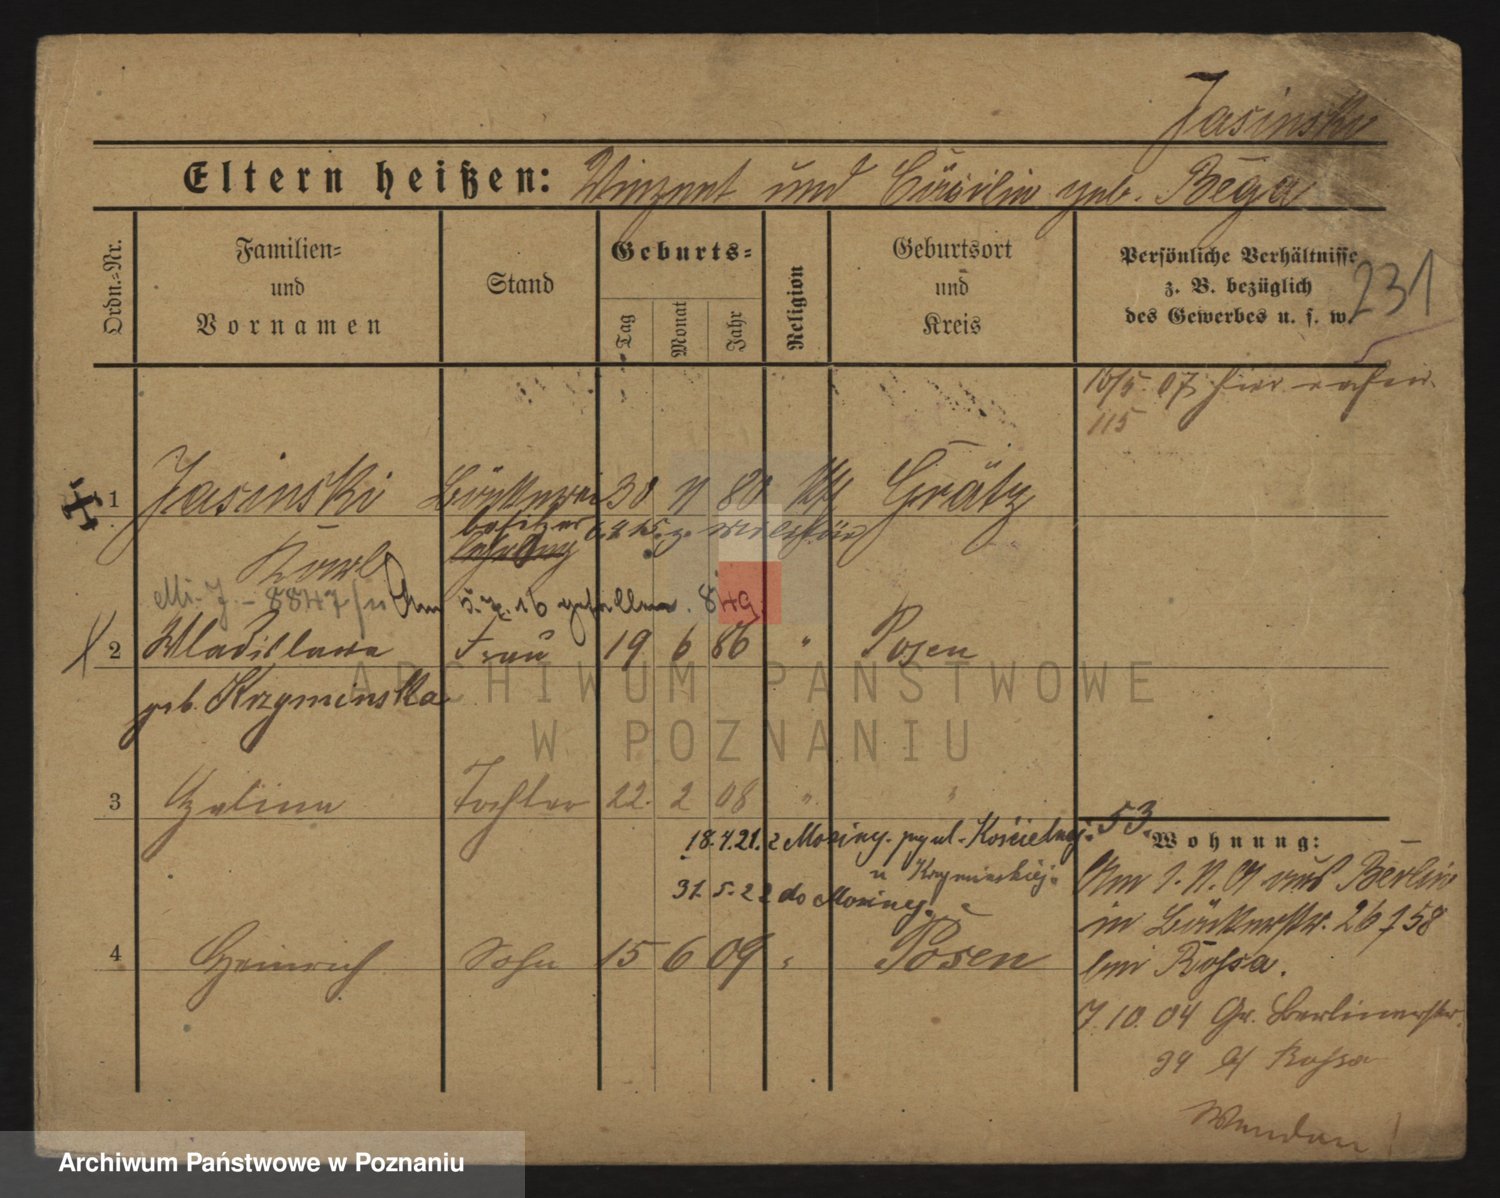 Jasinski
Eltern heißen: Vinzent und Cäcilie geb. Bega
Ordn.=Nr.
Familien=
und
Vornamen
Stand
Geburts=
Tag
Monat
Jahr
Religion
Geburtsort
und
Kreis
Persönliche Verhältnisse
z. B. bezüglich
des Gewerbes u. s. w.
231
10/5. 07. hier
115
1 Jasinski 30 11 80 Kth Grätz
besitzer
Karl
Am 5.7.16 gefallen. 849.
2 Wladislawa Frau 19 6 86 " Posen
geb. Krzyminska
3 Halina Tochter 22. 2 08 " "
18.4.21. z Mosiny. przy ul. Kościelnej. 53.
u Krzyminskiej.
31. 5. 22 do Mosiny.
4 Heinrich Sohn 15 6 09 " Posen
Wohnung:
Am 1. 11. 01 aus Berlin
in Bäckerstr. 26 f 58
bei Rossa.
7. 10. 04 Gr. Berlinerstr.
94 bei Rossa
Wenden
ARCHIWUM PAŃSTWOWE
W POZNANIU
Archiwum Państwowe w Poznaniu